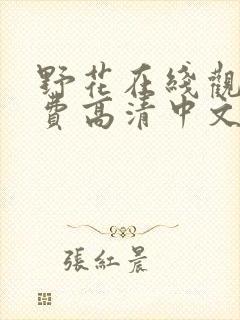 野花在綫觀
費高清中文
張紅晨